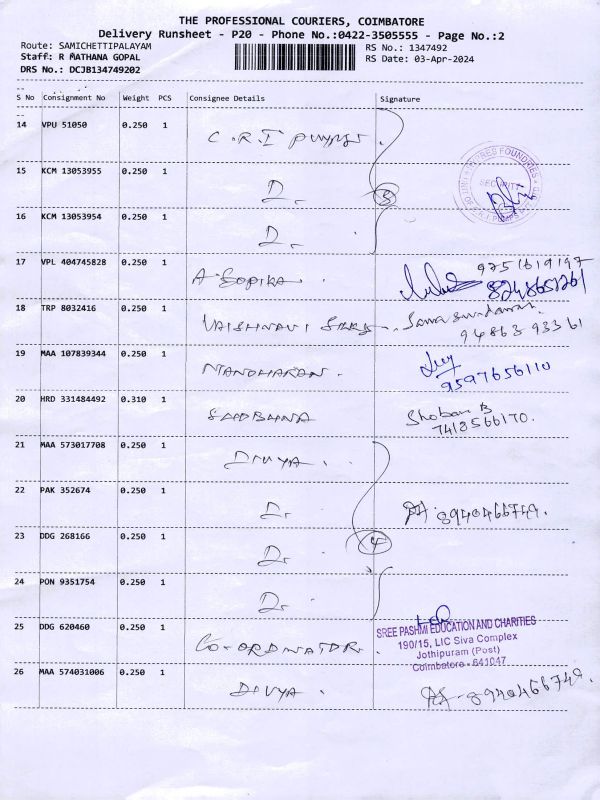 THE PROFESSIONAL COURIERS, COIMBATORE
Delivery Runsheet - P20 - Phone No.:0422-3505555 - Page No.:2
Route: SAMICHETTIPALAYAM
RS No.: 1347492
Staff: R MATHANA GOPAL
RS Date: 03-Apr-2024
DRS No.: DCJB134749202
S No Consignment No Weight PCS Consignee Details Signature
14 VPU 51050 0.250 1 C.R.I Pumps
15 KCM 13053955 0.250 1 D. 3
SECURITY
16 KCM 13053954 0.250 1 D.
17 VPL 404745828 0.250 1 A. Gopika 9751619197
8248651261
18 TRP 8032416 0.250 1 VAISHNAVI
94863 93361
19 MAA 107839344 0.250 1 MANOHARAN.
9597656110
20 HRD 331484492 0.310 1 SADBHNA Shoban B
7418566170.
21 MAA 573017708 0.250 1 DIVYA.
22 PAK 352674 0.250 1 D. 8940466749.
23 DDG 268166 0.250 1 D. 4
24 PON 9351754 0.250 1 D.
25 DDG 620460 0.250 1 CO-ORDINATOR.
SREE PASHMI EDUCATION AND CHARITIES
190/15, LIC Siva Complex
Jothipuram (Post)
Coimbatore - 641047
26 MAA 574031006 0.250 1 DIVYA. 8940466749.